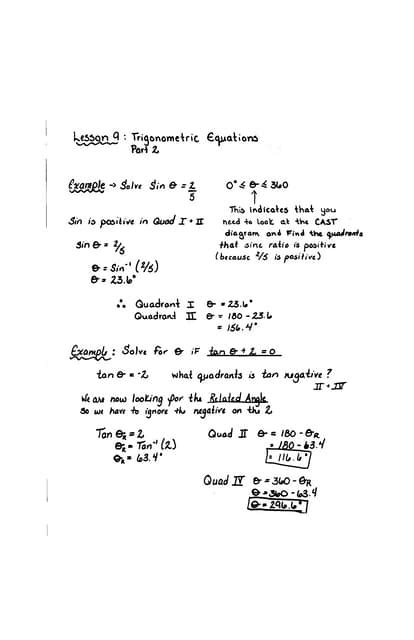 Lesson 9 : Trigonometric Equations
Part 2
Example → Solve Sin θ = 2/5   0° ≤ θ ≤ 360
↑
This indicates that you
Sin is positive in Quad I + II   need to look at the CAST
diagram and Find the quadrants
Sin θ = 2/5   that sine ratio is positive
(because 2/5 is positive)
θ = Sin⁻¹ (2/5)
θ = 23.6°
∴ Quadrant I   θ = 23.6°
Quadrant II   θ = 180 - 23.6
= 156.4°
Example : Solve for θ iF tan θ + 2 = 0
tan θ = -2   what quadrants is tan negative ?
II + IV
We are now looking for the Related Angle
So we have to ignore the negative on the 2
Tan θR = 2   Quad II   θ = 180 - θR
θR = Tan⁻¹ (2)   = 180 - 63.4
θR = 63.4°   = 116.6°
Quad IV   θ = 360 - θR
θ = 360 - 63.4
θ = 296.6°